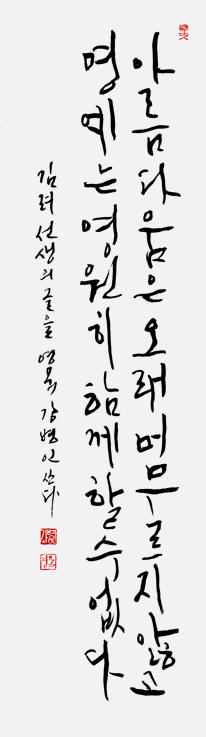 아름다움은오래머무르지않고
명예는영원히함께할수없다
김려선생의글을 영묵강병인쓰다